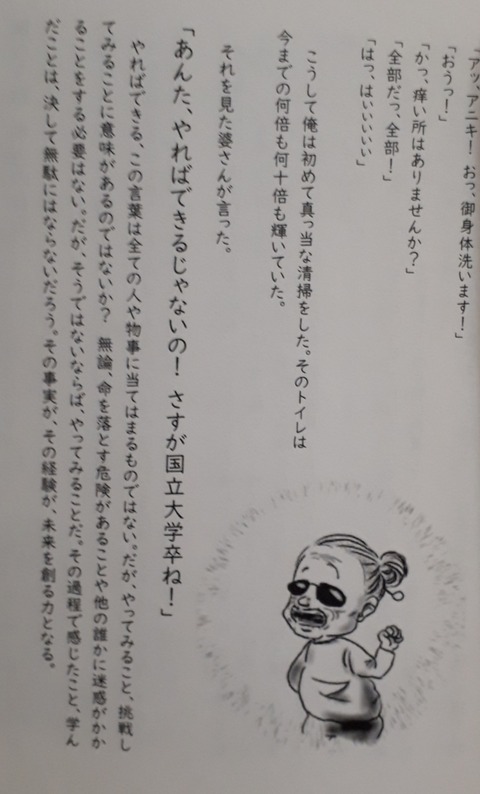 「アッ、アニキ！　おっ、御身体洗います！」
「おうっ！」
「かっ、痒い所はありませんか？」
「全部だっ、全部！」
「はっ、はぃぃぃぃぃ」
こうして俺は初めて真っ当な清掃をした。そのトイレは
今までの何倍も何十倍も輝いていた。
それを見た婆さんが言った。
「あんた、やればできるじゃないの！　さすが国立大学卒ね！」
やればできる、この言葉は全ての人や物事に当てはまるものではない。だが、やってみること、挑戦し
てみることに意味があるのではないか？　無論、命を落とす危険があることや他の誰かに迷惑がかか
ることをする必要はない。だが、そうではないならば、やってみることだ。その過程で感じたこと、学ん
だことは、決して無駄にはならないだろう。その事実が、その経験が、未来を創る力となる。